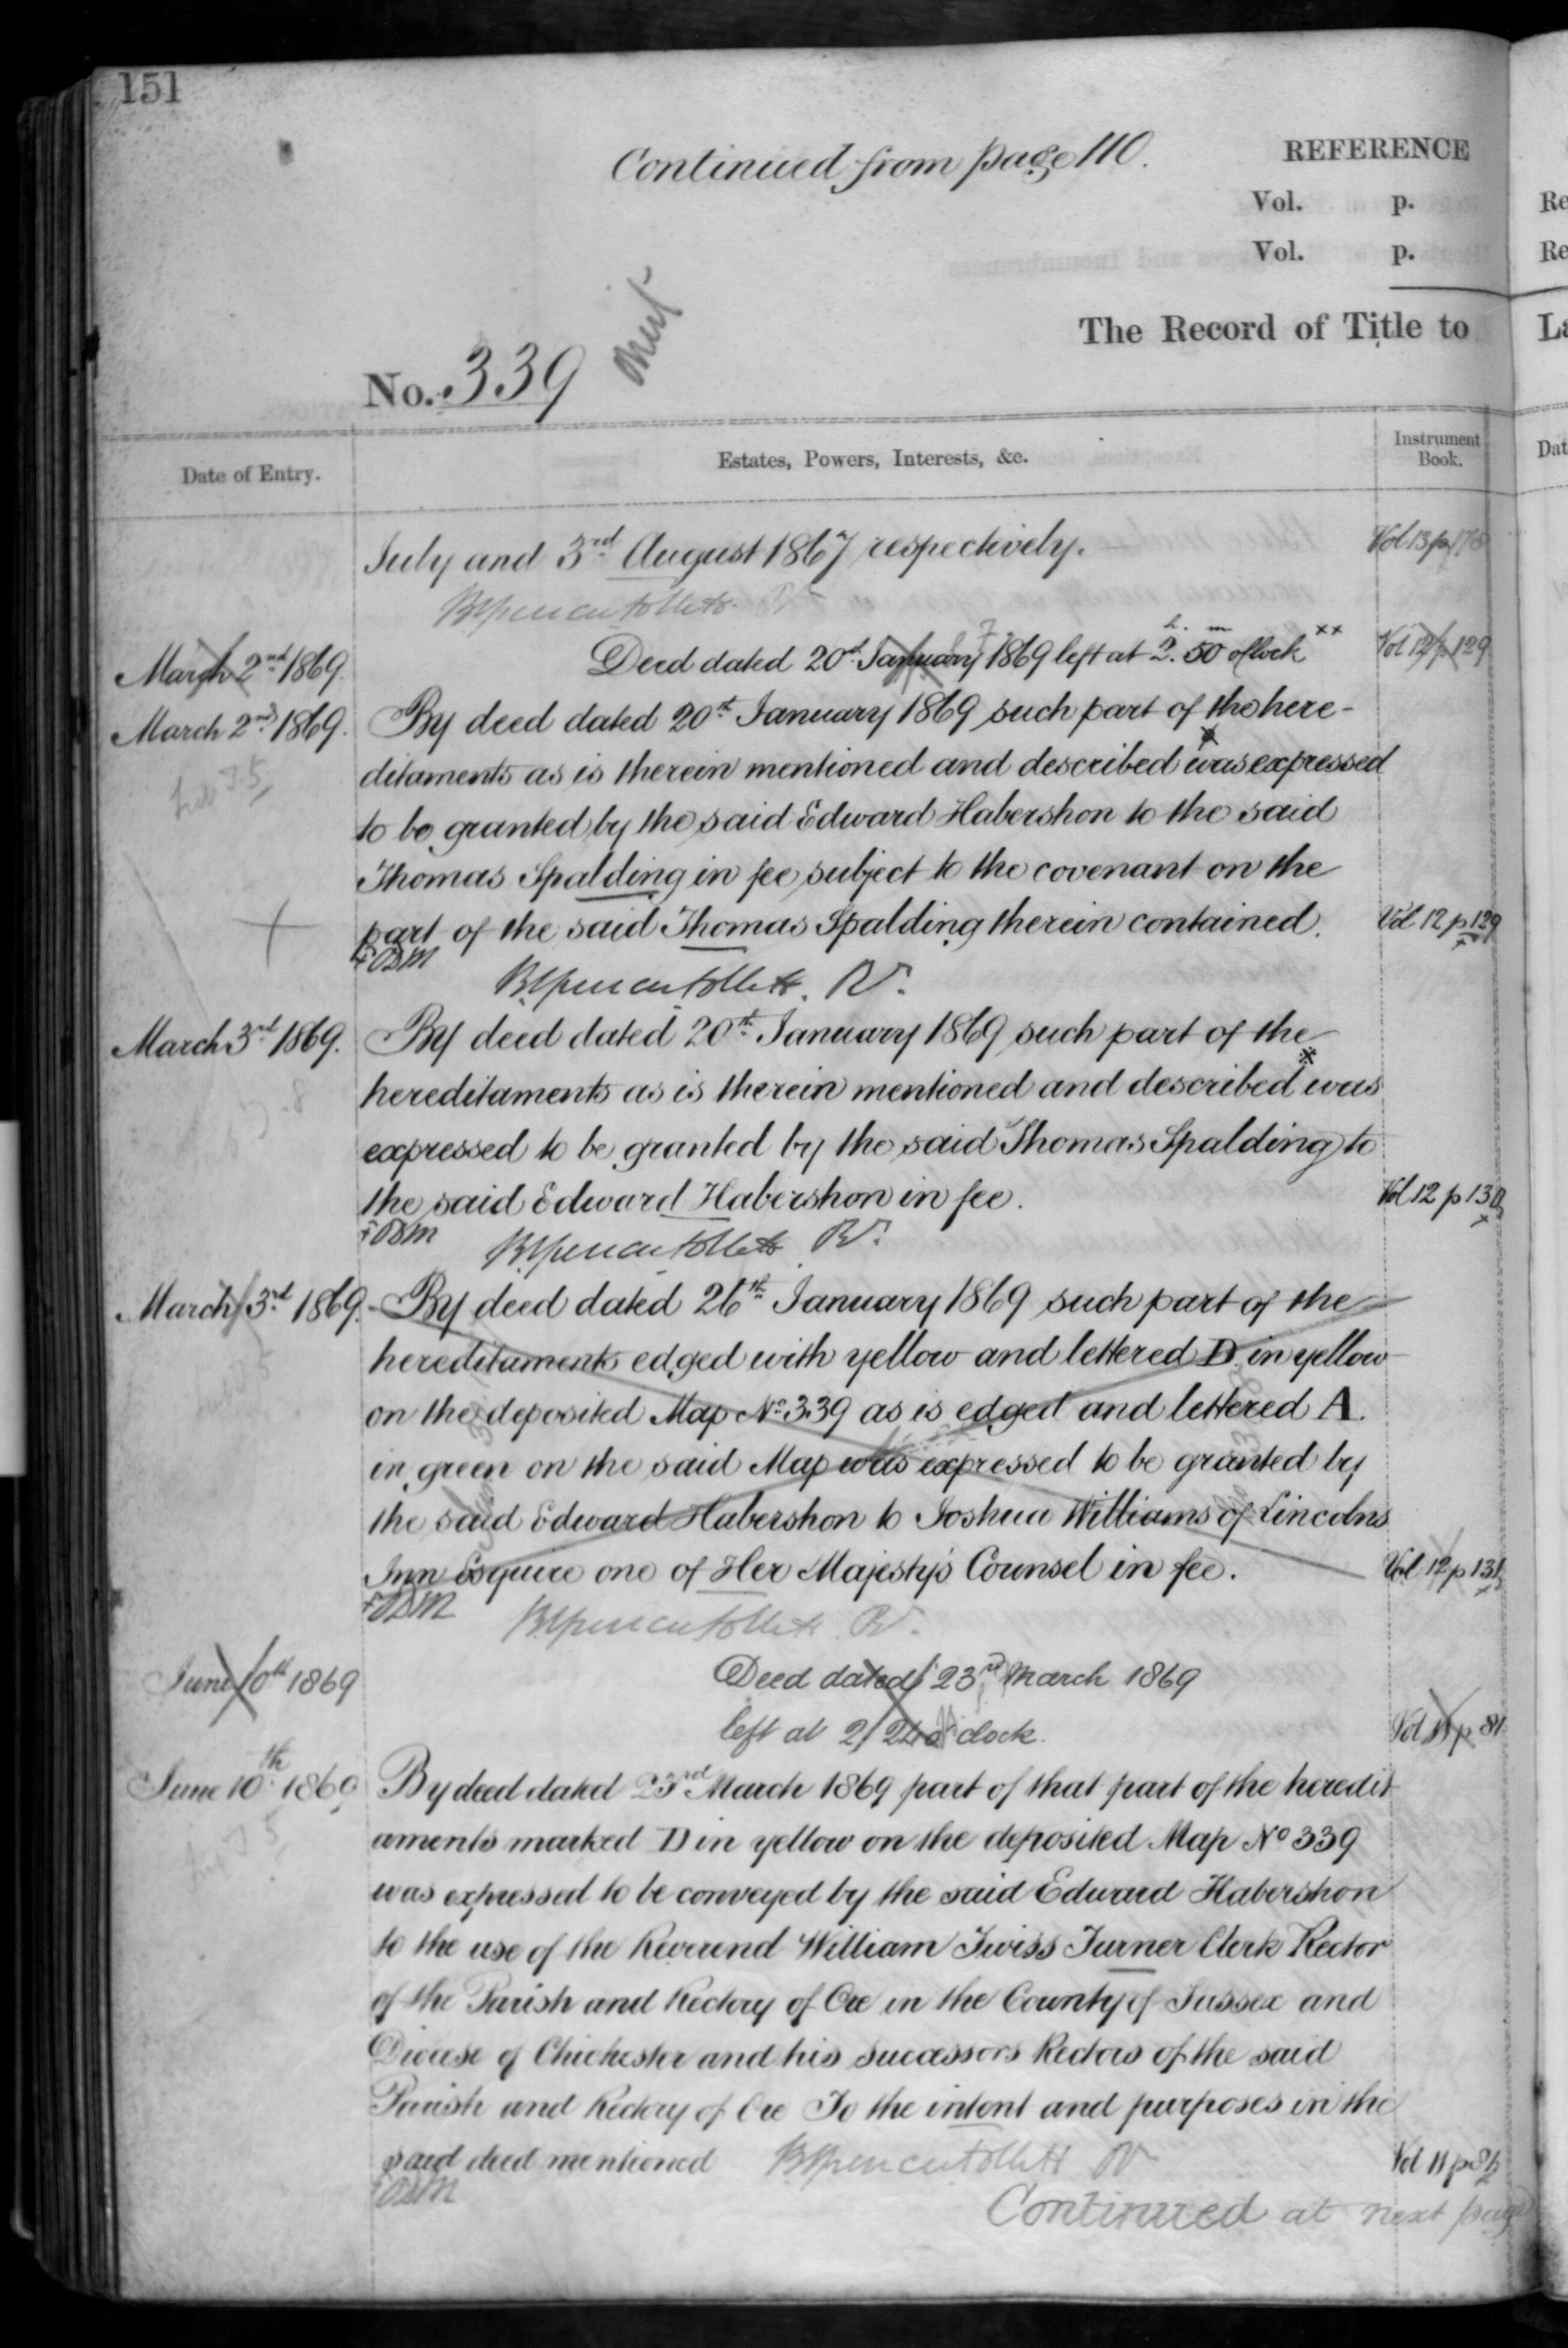 151
Continued from page 110.
REFERENCE
Vol. p.
Vol. p.
The Record of Title to
No. 339
Date of Entry.
Estates, Powers, Interests, &c.
Instrument Book.
July and 3rd August 1867 respectively.
Vol 13 p
March 2nd 1869. Deed dated 20th January 1869 left at 2h. 50m o'clock xx Vol 12 p 129
March 2nd 1869. By deed dated 20th January 1869 such part of the here-
ditaments as is therein mentioned and described was expressed
to be granted by the said Edward Habershon to the said
Thomas Spalding in fee subject to the covenant on the
part of the said Thomas Spalding therein contained. Vol 12 p 129
March 3rd 1869. By deed dated 20th January 1869 such part of the
hereditaments as is therein mentioned and described was
expressed to be granted by the said Thomas Spalding to
the said Edward Habershon in fee. Vol 12 p 130
March 3rd 1869. By deed dated 26th January 1869 such part of the
hereditaments edged with yellow and lettered D in yellow
on the deposited Map No. 339 as is edged and lettered A.
in green on the said Map was expressed to be granted by
the said Edward Habershon to Joshua Williams of Lincolns
Inn Esquire one of Her Majesty's Counsel in fee. Vol 12 p 131
June 10th 1869 Deed dated 23rd March 1869
left at 2/24 o'clock. Vol 11 p 81
June 10th 1869 By deed dated 23rd March 1869 part of that part of the heredit
aments marked D in yellow on the deposited Map No 339
was expressed to be conveyed by the said Edward Habershon
to the use of the Reverend William Twiss Turner Clerk Rector
of the Parish and Rectory of Ore in the County of Sussex and
Diocese of Chichester and his successors Rectors of the said
Parish and Rectory of Ore To the intent and purposes in the
said deed mentioned Vol 11 p 81
Continued at next page
Re
Re
La
Dat